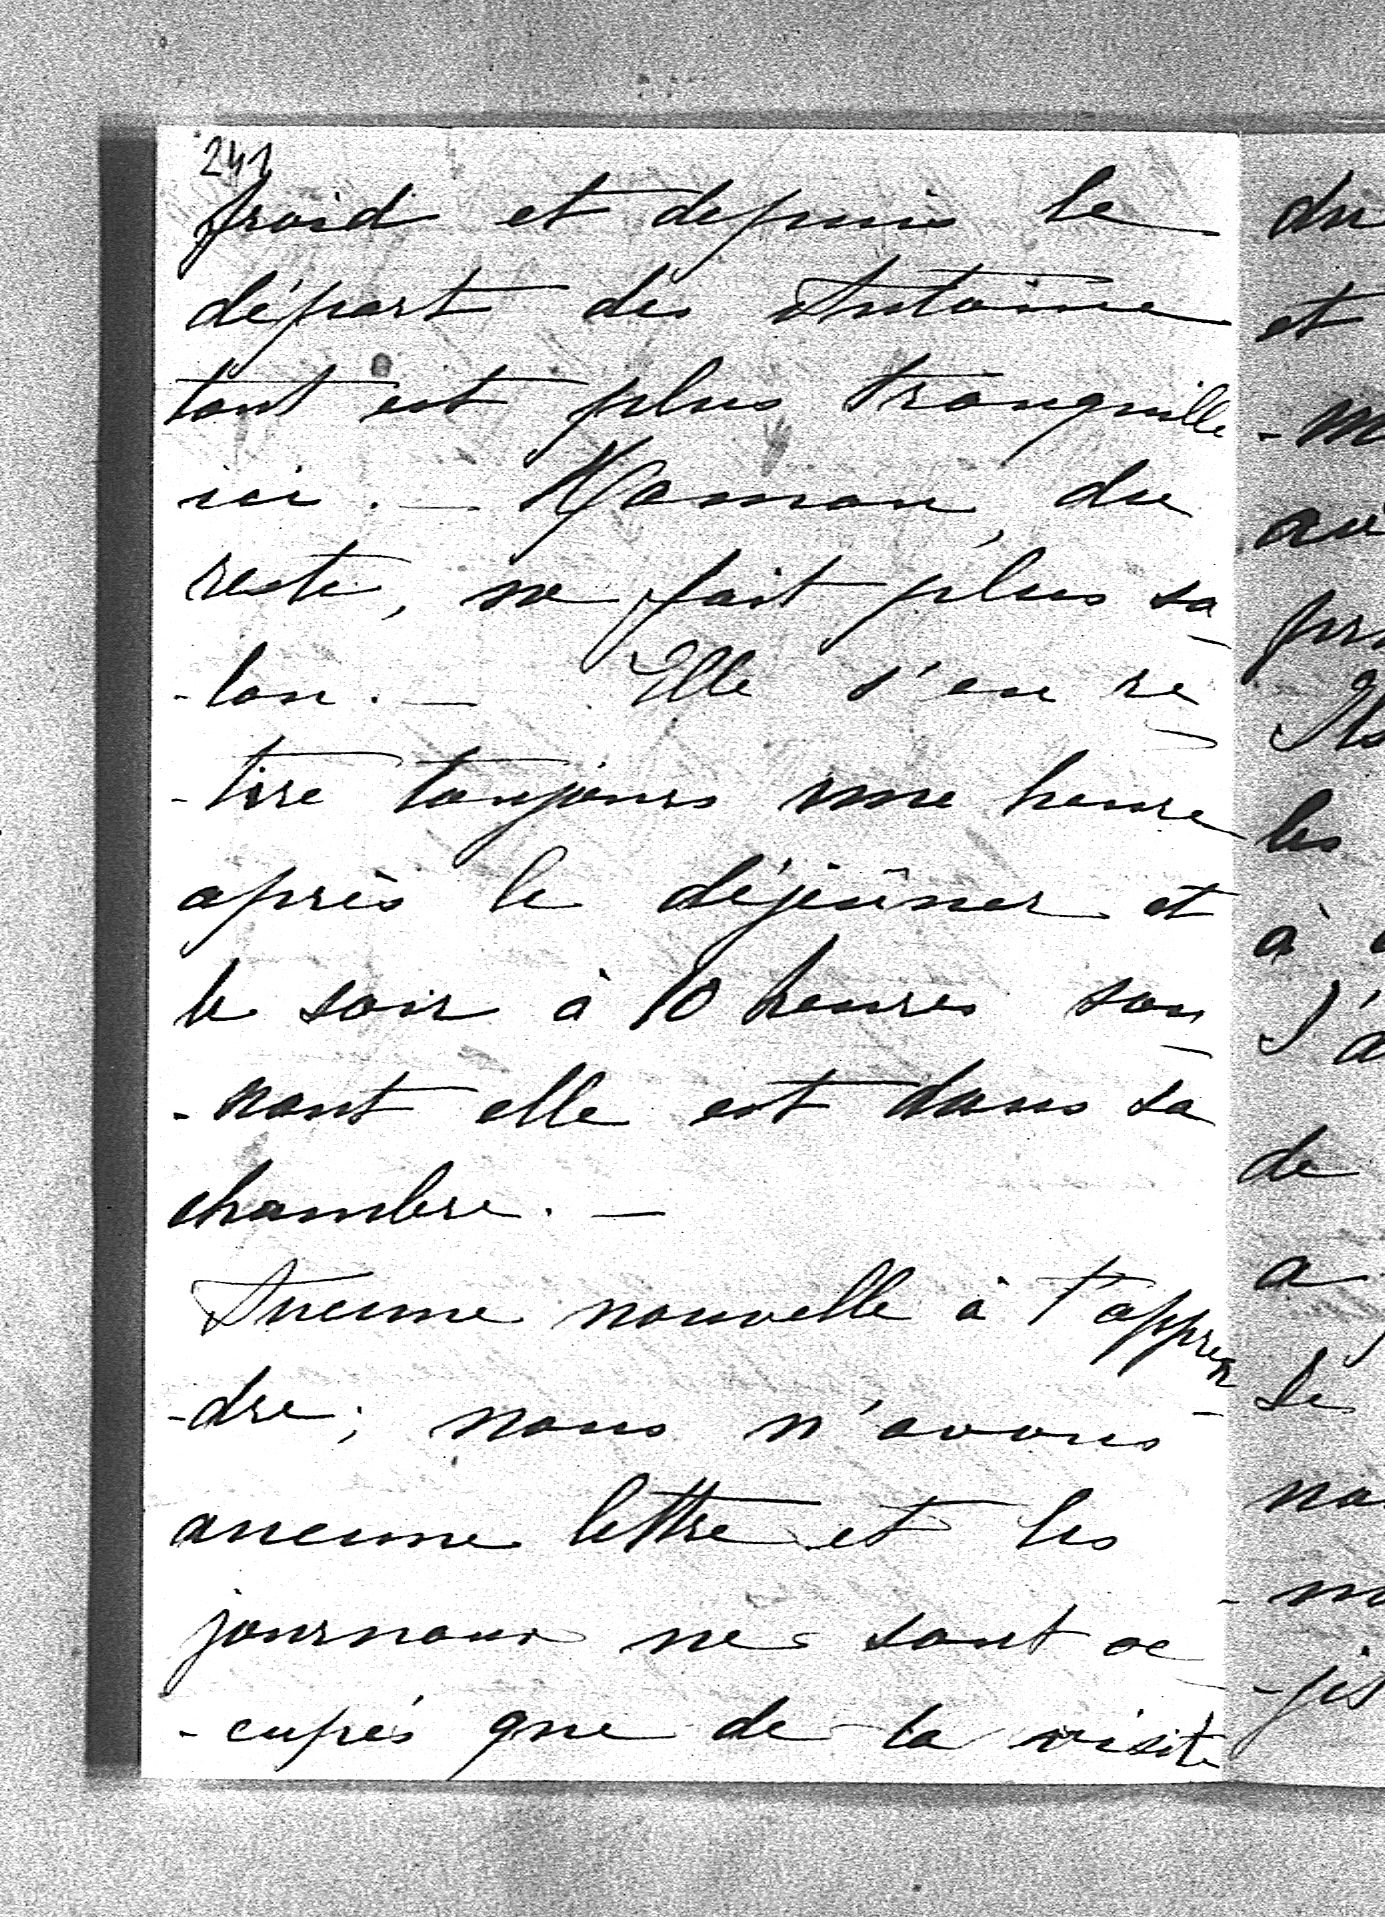 241
froid et depuis le
départ des Antoine
tout est plus tranquille
ici. — Maman, du
reste, ne fait plus sa-
-lon. — Elle s'en re-
-tire toujours une heure
après le déjeûner et
le soir à 10 heures son-
-nant elle est dans sa
chambre. —
Aucune nouvelle à t'appren-
-dre; nous n'avons
aucune lettre et les
journaux ne sont oc-
-cupés que de la visite
du
et
les
à
de
a